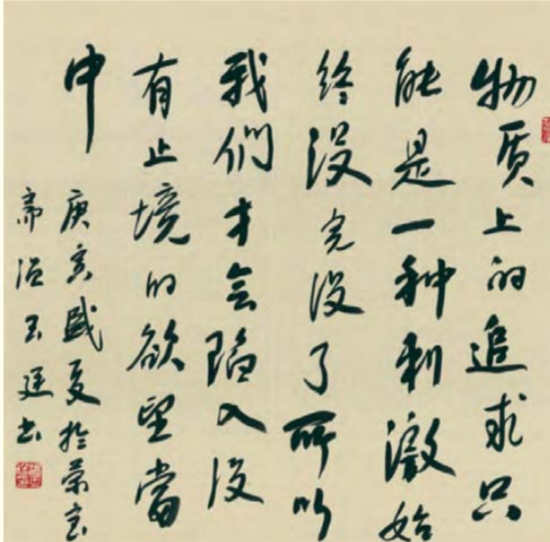 物质上的追求只
能是一种刺激始
终没完没了所以
我們才会陷入没
有止境的欲望當
中
庚寅盛夏於荣宝
斋 玉 书